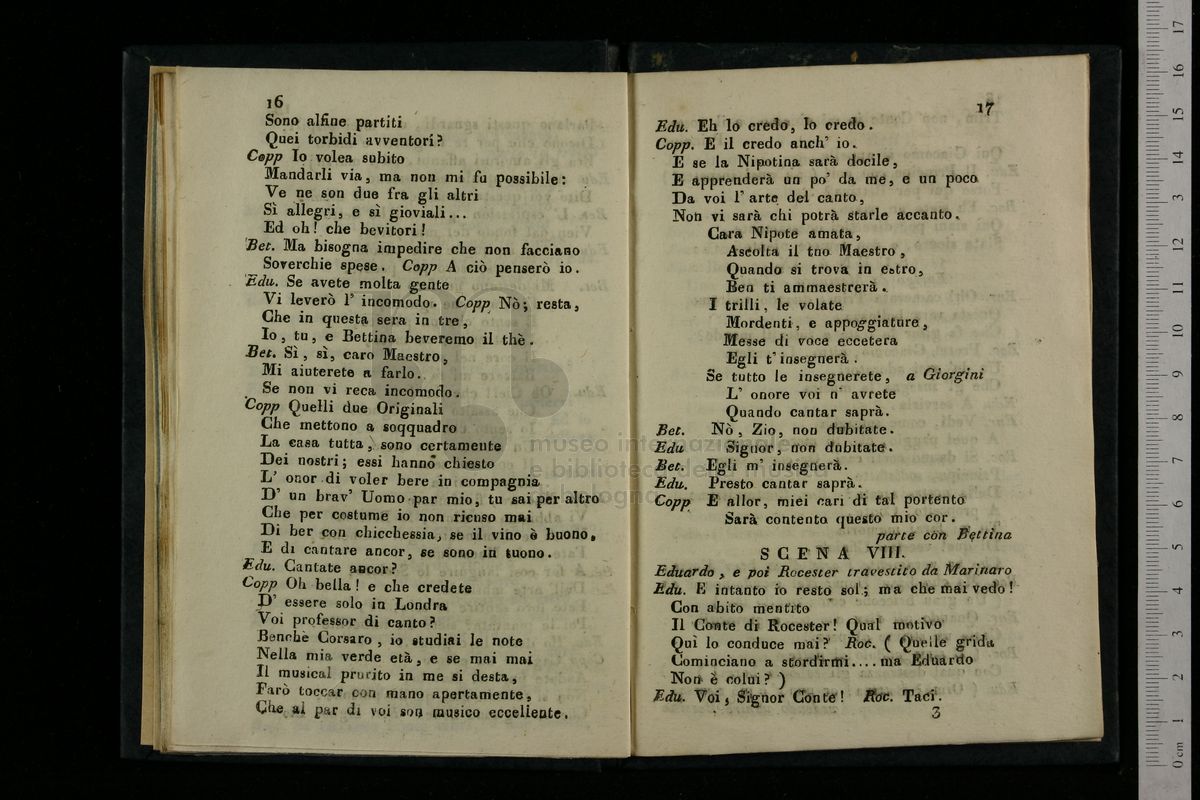 16
Sono alfine partiti
Quei torbidi avventori?
Copp Io volea subito
Mandarli via, ma non mi fu possibile:
Ve ne son due fra gli altri
Sì allegri, e sì gioviali...
Ed oh! che bevitori!
Bet. Ma bisogna impedire che non facciano
Soverchie spese. Copp A ciò penserò io.
Edu. Se avete molta gente
Vi leverò l' incomodo. Copp Nò; resta,
Che in questa sera in tre,
Io, tu, e Bettina beveremo il thè.
Bet. Sì, sì, caro Maestro,
Mi aiuterete a farlo.
Se non vi reca incomodo.
Copp Quelli due Originali
Che mettono a soqquadro
La casa tutta, sono certamente
Dei nostri; essi hanno chiesto
L' onor di voler bere in compagnia
D' un brav' Uomo par mio, tu sai per altro
Che per costume io non ricuso mai
Di ber con chicchessia, se il vino è buono,
E di cantare ancor, se sono in tuono.
Edu. Cantate ancor?
Copp Oh bella! e che credete
D' essere solo in Londra
Voi professor di canto?
Benchè Corsaro, io studiai le note
Nella mia verde età, e se mai mai
Il musical prurito in me si desta,
Farò toccar con mano apertamente,
Che al par di voi son musico eccellente.
17
Edu. Eh lo credo, lo credo.
Copp. E il credo anch' io.
E se la Nipotina sarà docile,
E apprenderà un po' da me, e un poco
Da voi l' arte del canto,
Non vi sarà chi potrà starle accanto.
Cara Nipote amata,
Ascolta il tno Maestro,
Quando si trova in estro,
Ben ti ammaestrerà.
I trilli, le volate
Mordenti, e appoggiature,
Messe di voce eccetera
Egli t' insegnerà.
Se tutto le insegnerete, a Giorgini
L' onore voi n' avrete
Quando cantar saprà.
Bet. Nò, Zio, non dubitate.
Edu Signor, non dubitate.
Bet. Egli m' insegnerà.
Edu. Presto cantar saprà.
Copp E allor, miei cari di tal portento
Sarà contento questo mio cor.
parte con Bettina
SCENA VIII.
Eduardo, e poi Rocester travestito da Marinaro
Edu. E intanto io resto sol; ma che mai vedo!
Con abito mentito
Il Conte di Rocester! Qual motivo
Quì lo conduce mai? Roc. ( Quelle grida
Cominciano a stordirmi.... ma Eduardo
Non è colui? )
Edu. Voi, Signor Conte! Roc. Taci.
3
museo internazionale
e biblioteca della musica
di bologna
0 cm 1 2 3 4 5 6 7 8 9 10 11 12 13 14 15 16 17